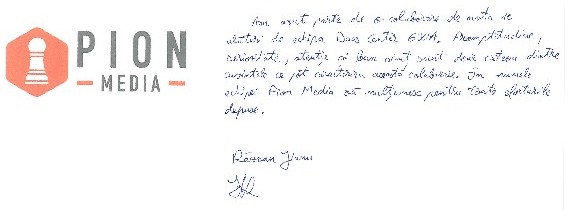 PION
MEDIA
Am avut parte de o colaborare de nota 10
alături de echipa Dacs Center Promptitudine,
seriozitate, atenție și bun simț sunt doar câteva dintre
cuvintele ce pot caracteriza această colaborare. În numele
echipei Pion Media vă mulțumesc pentru toate eforturile
depuse.
Răzvan